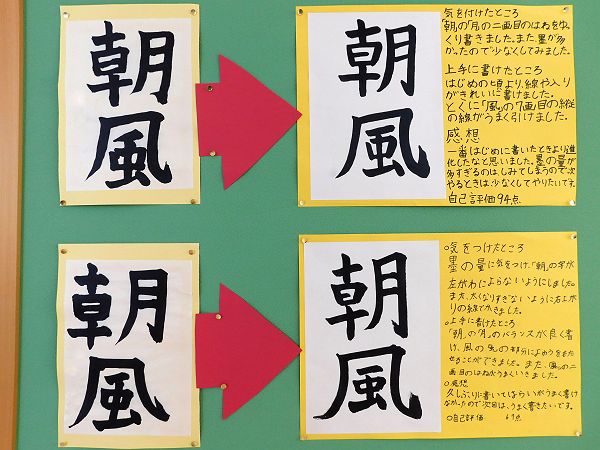 朝風
朝風
気を付けたところ
「朝」の「月」の二画目のはねをゆっ
くり書きました。また、墨が多
かったので少なくしてみました。
上手に書けたところ
はじめの頃より、線や入り
がきれいに書けました。
とくに「風」の7画目の縦
の線がうまく引けました。
感想
一番はじめに書いたときより進
化したなと思いました。墨の量が
多すぎるのは、しみてしまうので、次
やるときは少なくしてやりたいです。
自己評価94点
朝風
朝風
○気をつけたところ
墨の量に気をつけ、「朝」の字が
左がわによらないようにしました。
また、太くなりすぎないように右上が
りの線でかきました。
○上手に書けたところ
「朝」の「月」のバランスが良く書
け、風の虫の部分に
せることができました。また、「風」の二
画目のはねがうまくいきました。
○感想
久しぶりに書いてはらいがうまく書け
なかったので次回は、うまく書きたいです。
○自己評価 69点